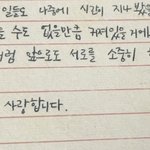 일들도 나중에 시간이 지나 봤을
수도 없을만큼 커져있을거에
앞으로도 서로를 소중히
사랑합니다.